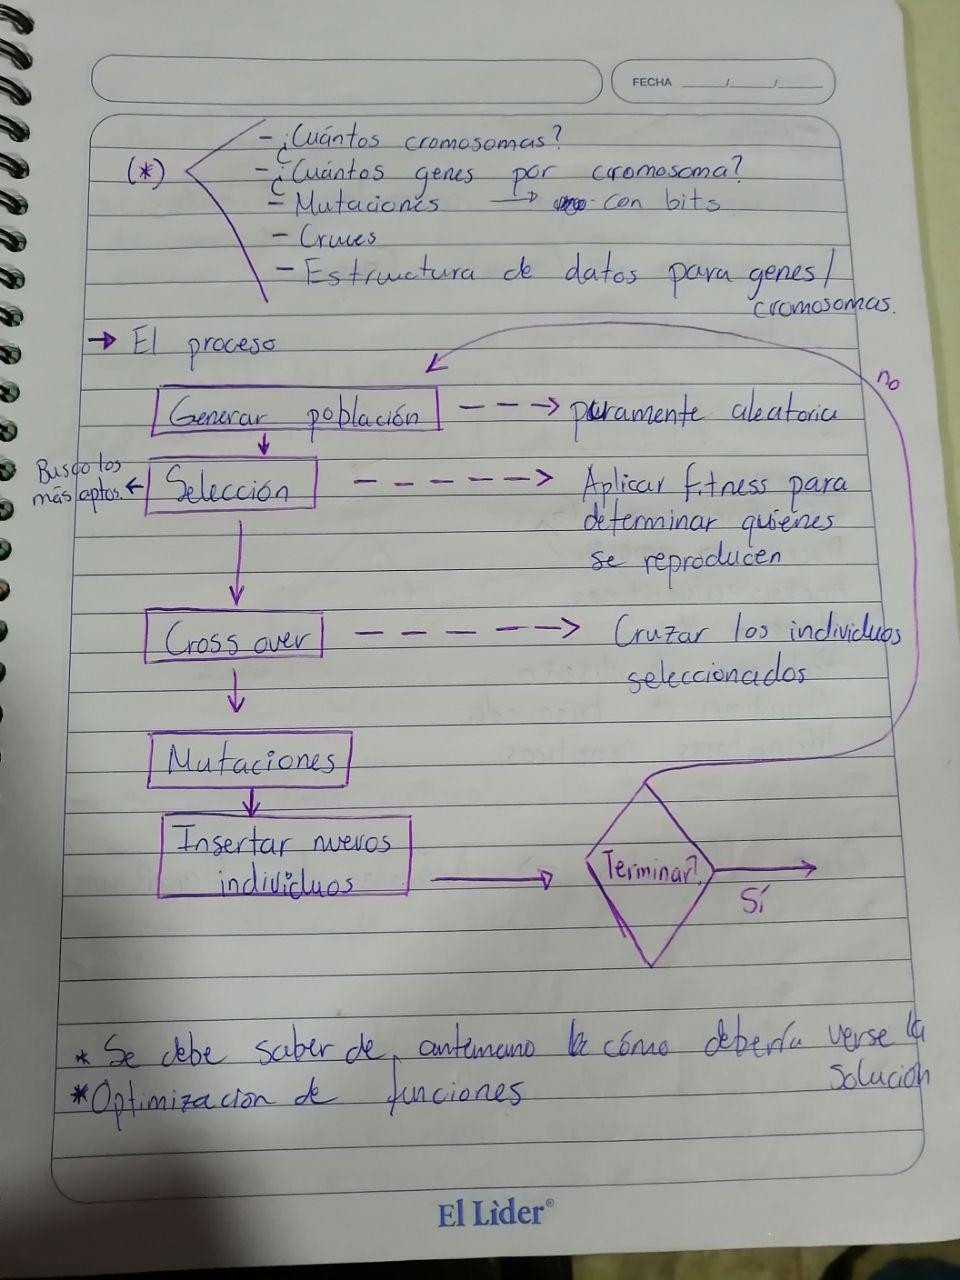 FECHA ____/____/____
- ¿Cuántos cromosomas?
(*)
- ¿Cuántos genes por cromosoma?
- Mutaciones → con bits
- Cruces
- Estructura de datos para genes/
cromosomas.
→ El proceso
no
Generar población ---> puramente aleatoria
Busco los
más aptos. ← Selección -----> Aplicar fitness para
determinar quiénes
se reproducen
Cross over -----> Cruzar los individuos
seleccionados
Mutaciones
Insertar nuevos
individuos
Terminar?
Sí
* Se debe saber de antemano cómo debería verse la
solución
* Optimización de funciones
El Lìder®